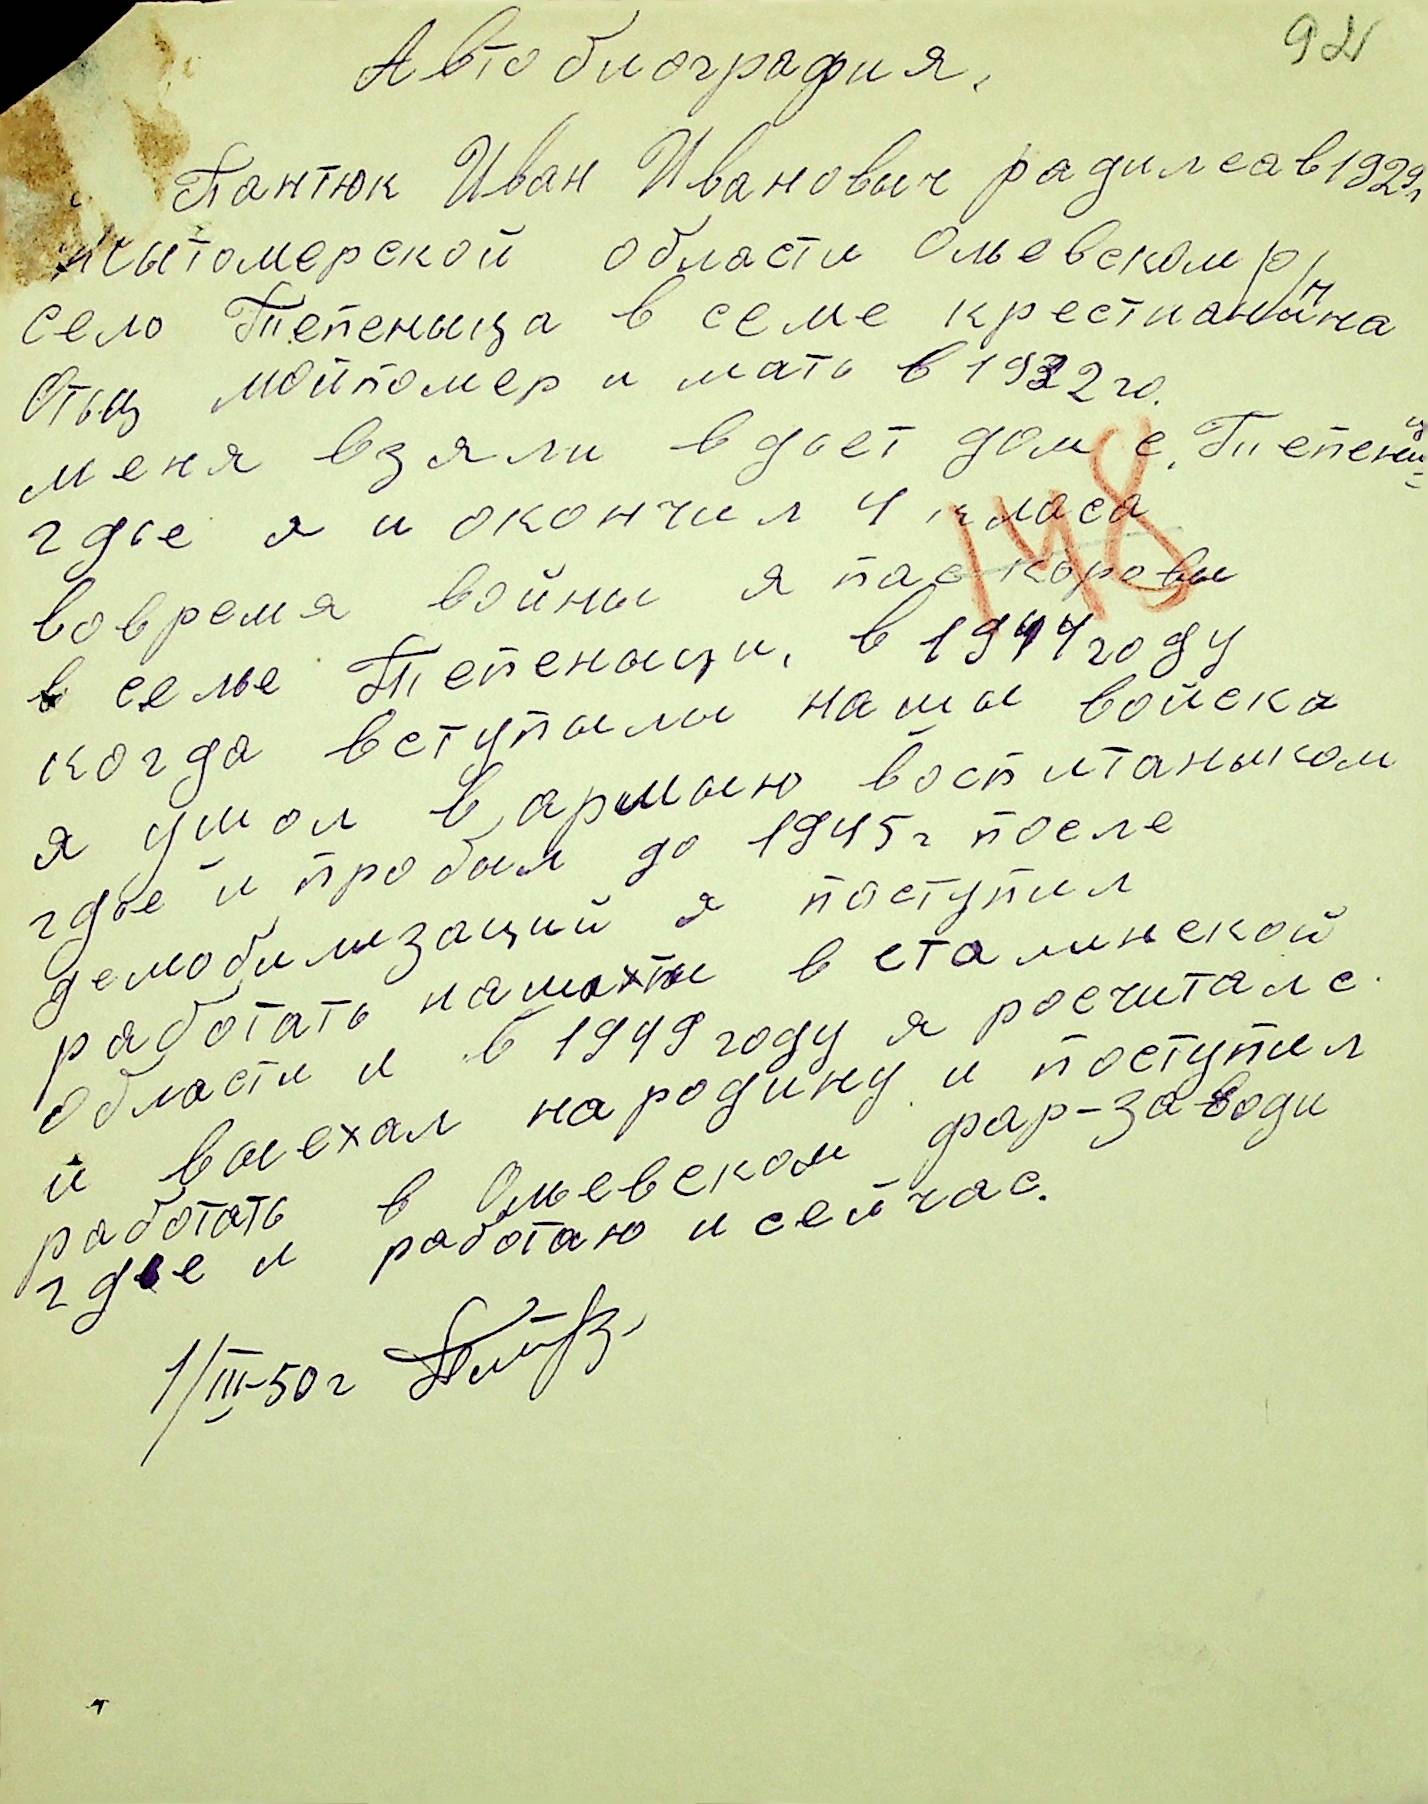 92
Автобиография.
Пантюк Иван Ивановыч радился в 1929г
Жытомерской области Ольевском р/н
село Тепеныца в семе крестианина
Отыц мой помер и мать в 1932 го.
меня взяли в дьет дом с. Тепеныци
гдье я и окончил 4 класа
148
вовремя войны я пас коровы
в селье Тепеныци, в 1944 году
когда вступылы нашы войска
я ушол в армыю воспитаныком
гдье и пробыл до 1945г после
демобилизаций я поступил
работать нашахты в сталинской
области и в 1949 году я росчитался.
и выехал народину и поступил
работать в Ольевском фар-заводи
гдье и работаю и сейчас.
1/III-50г